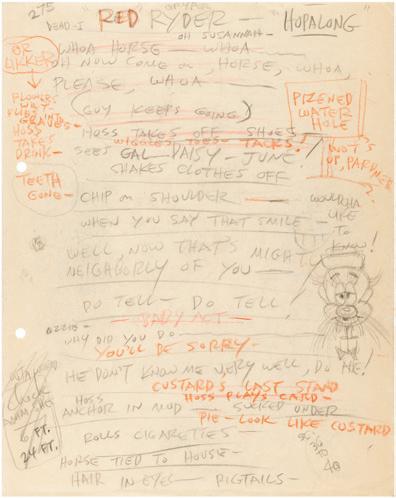 275
DEAD-I
RED RYDER — "HOPALONG"
OH SUSANNAH—
WHOA HORSE — WHOA
OH NOW COME ON, HORSE, WHOA,
PLEASE, WHOA —
(GUY KEEPS GOING)
HOSS TAKES OFF SHOES
WIGGLES TOES — TACKS!
SEES GAL — DAISY — JUNE!
SHAKES CLOTHES OFF
OR
LICKER
FLOWERS
WILT
FLIES
HOSS
TAKES
DRINK—
TEETH
GONE—
PIZENED
WATER
HOLE
UP, PARDNER
?
CHIP ON SHOULDER —
WHEN YOU SAY THAT SMILE —
WOULDHA
LIKE
TO
KNOW!
WELL, NOW THAT'S MIGHTY
NEIGHBORLY OF YOU —
DO TELL — DO TELL!
— BABY ACT —
WHY DID YOU DO —
YOU'LL BE SORRY —
HE DON'T KNOW ME VERY WELL, DO HE!
CUSTARD'S LAST STAND
HOSS PLAYS CARD —
HOSS
ANCHOR IN MUD — SUCKED UNDER
PIE — LOOK LIKE CUSTARD
6 FT.
24 FT.
ROLLS CIGARETTES —
HORSE TIED TO HOUSE —
HAIR IN EYES — PIGTAILS —